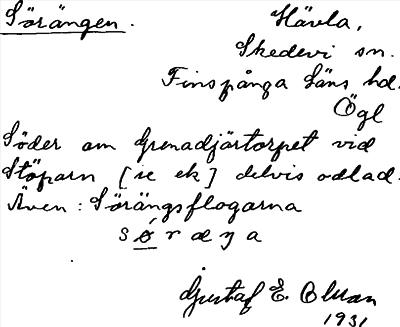 Sörängen.
Hävla,
Skedevi sn.
Finspånga läns hd.
Ögl
Söder om Grenadjärtorpet vid
Stöparn [se ek] delvis odlad.
Även: Sörängsflogarna
søræŋa
Gustaf E. Olsson
1931